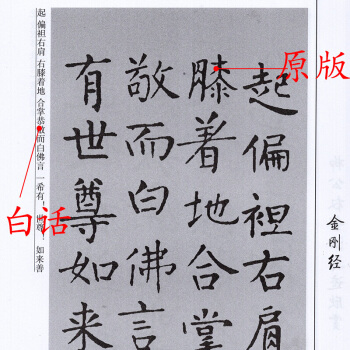 金刚经
起偏袒右肩
膝着地合掌
敬而白佛言
有世尊如来
起 偏袒右肩 右膝着地 合掌恭敬而白佛言 希有！世尊！如来善
原版
白话